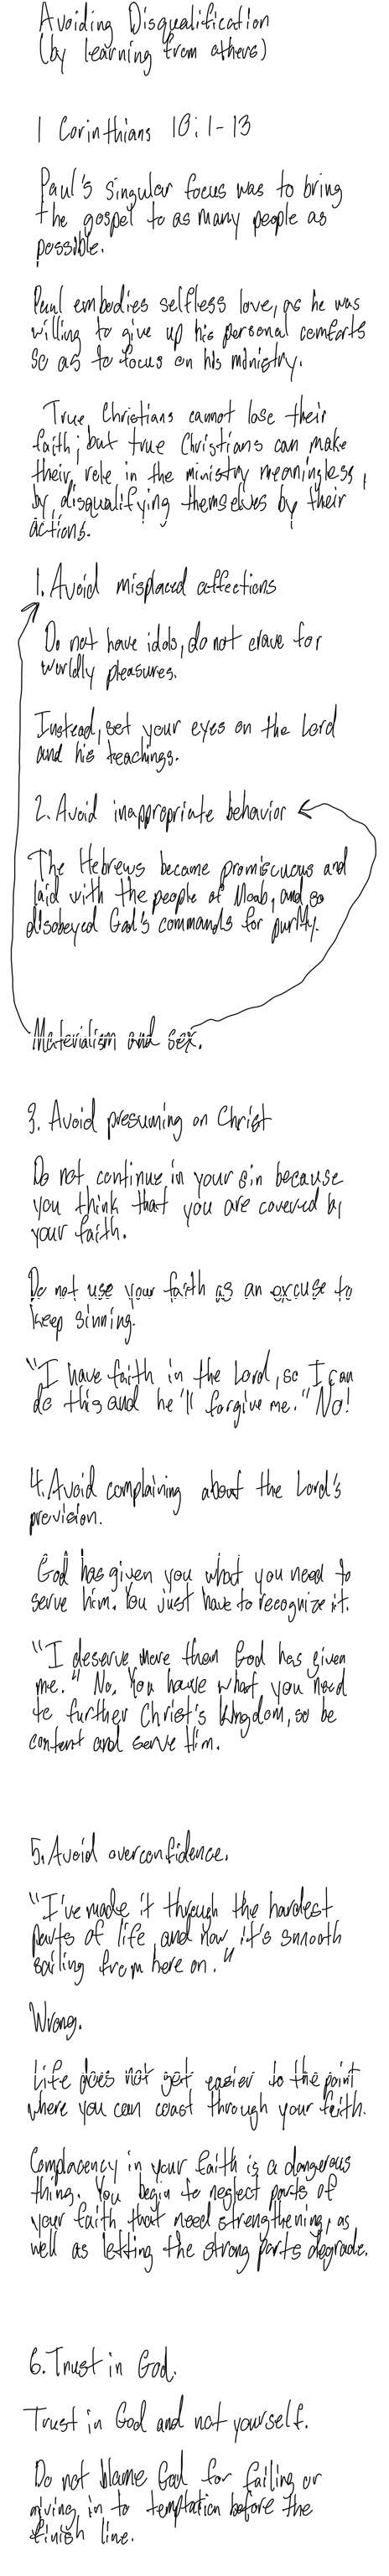 Avoiding Disqualification
(by learning from others)
1 Corinthians 10:1-13
Paul's singular focus was to bring
the gospel to as many people as
possible.
Paul embodies selfless love, as he was
willing to give up his personal comforts
so as to focus on his ministry.
True Christians cannot lose their
faith; but true Christians can make
their role in the ministry meaningless,
by disqualifying themselves by their
actions.
1. Avoid misplaced affections
Do not have idols, do not crave for
worldly pleasures.
Instead, set your eyes on the Lord
and his teachings.
2. Avoid inappropriate behavior
The Hebrews became promiscuous and
laid with the people of Moab, and so
disobeyed God's commands for purity.
Materialism and sex.
3. Avoid presuming on Christ
Do not continue in your sin because
you think that you are covered by
your faith.
Do not use your faith as an excuse to
keep sinning.
"I have faith in the Lord, so I can
do this and he'll forgive me." No!
4. Avoid complaining about the Lord's
provision.
God has given you what you need to
serve him. You just have to recognize it.
"I deserve more than God has given
me." No. You have what you need
to further Christ's kingdom, so be
content and serve Him.
5. Avoid overconfidence.
"I've made it through the hardest
parts of life, and now it's smooth
sailing from here on."
Wrong.
Life does not get easier to the point
where you can coast through your faith.
Complacency in your faith is a dangerous
thing. You begin to neglect parts of
your faith that need strengthening, as
well as letting the strong parts degrade.
6. Trust in God.
Trust in God and not yourself.
Do not blame God for failing or
giving in to temptation before the
finish line.